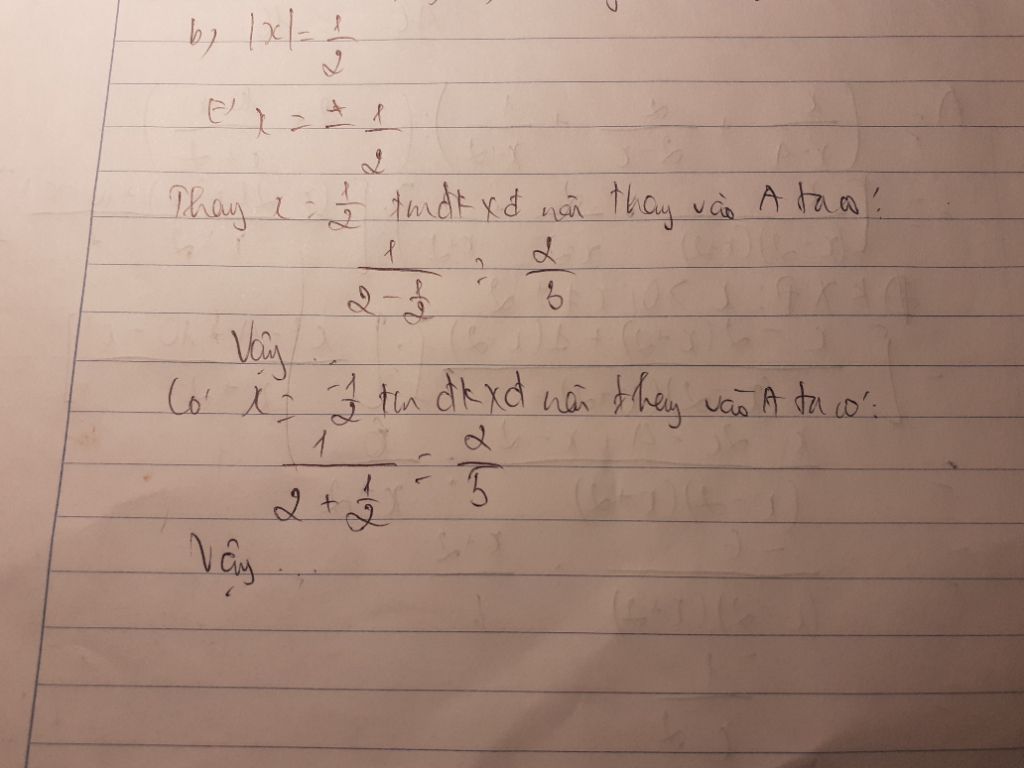 b, |x| = 1/2
x = ± 1/2
Thay x = 1/2 tmđkxđ nên thay vào A ta có:
1/(2 - 1/2) = 2/3
Vậy ...
Có x = -1/2 tm đkxđ nên thay vào A ta có:
1/(2 + 1/2) = 2/5
Vậy ...